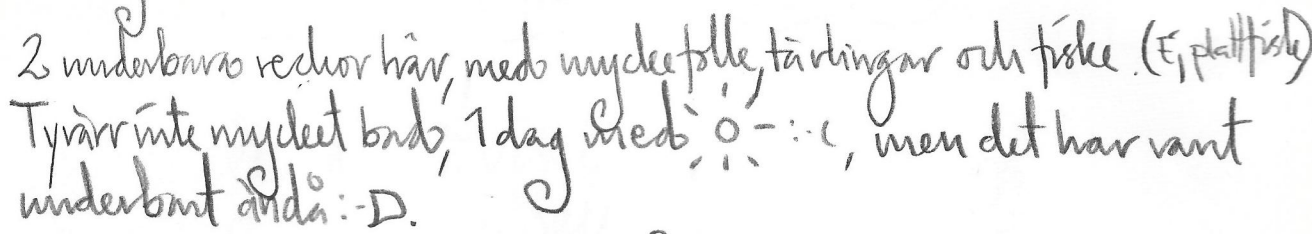 2 underbara veckor här, med mycke folk, tävlingar och fiske. (Ej plattfisk)
Tyvärr inte mycket bad, 1 dag med ☼ - :-(, men det har vart
underbart ändå :-D.